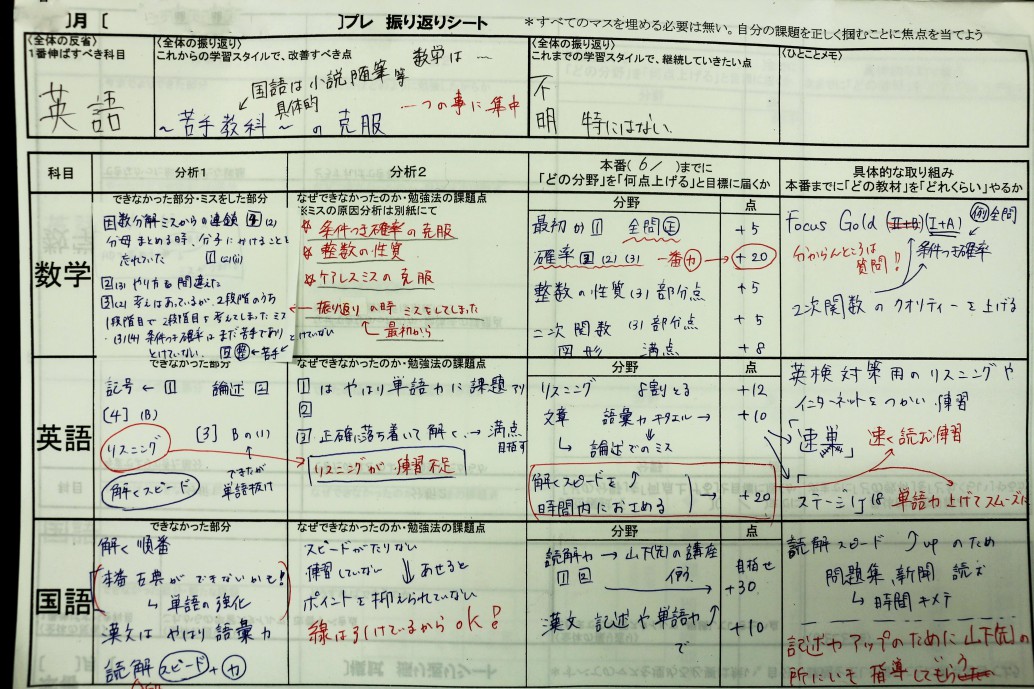 ]月 [ ]プレ 振り返りシート
＊すべてのマスを埋める必要は無い。自分の課題を正しく掴むことに焦点を当てよう
〈全体の反省〉
1番伸ばすべき科目
英語
〈全体の振り返り〉
これからの学習スタイルで、改善すべき点
数学は …
国語は小説随筆等
具体的
一つの事に集中
〜苦手教科〜の克服
〈全体の振り返り〉
これまでの学習スタイルで、継続していきたい点
不明 特にはない
〈ひとことメモ〉
科目
分析1
分析2
本番( 6/ )までに
「どの分野」を「何点上げる」と目標に届くか
具体的な取り組み
本番までに「どの教材」を「どれくらい」やるか
数学
できなかった部分・ミスをした部分
因数分解ミスからの連鎖 (2)
分母まとめる時、分子にかけることを
忘れていた 1 (2)(ii)
2 (3) やり方を間違えた
3 (2) 考えはあっているが、2段階のうち
1段階目で2段階目を考えてしまったミス
(3)(4) 条件つき確率はまだ苦手であり
とけていない
←苦手
なぜできなかったのか・勉強法の課題点
※ミスの原因分析は別紙にて
条件つき確率の克服
整数の性質
ケアレスミスの克服
← 振り返りの時 ミスをしてしまった
最初から
とけていない
分野
点
最初の 1 全問 正
+5
確率 (2) (3) 一番 カ →
+20
整数の性質 (3) 部分点
+5
二次関数 (3) 部分点
+5
図形 満点
+8
Focus Gold (II+B) (I+A) 例 全問
分からんところは
質問!
条件つき確率
2次関数のクオリティーを上げる
英語
できなかった部分
記号 ← 1 論述 2
[4] (B)
リスニング
[3] Bの(1)
できたが
単語抜け
解くスピード
なぜできなかったのか・勉強法の課題点
1 はやはり単語力に課題であり
2
3 正確に落ち着いて解く。→ 満点
目指す
リスニングが練習不足
分野
点
リスニング 8割とる
+12
文章 語彙力 キタエル →
+10
↳ 論述でのミス
解くスピードを↑
時間内におさめる
→ +20
英検対策用のリスニングや
インターネットをつかい、練習
「速単」
速く読む練習
「ステージ1」は 単語力上げてスムーズに
国語
できなかった部分
解く順番
本番古典ができないかも!
↳ 単語の強化
漢文はやはり語彙力
読解 スピード + 力
なぜできなかったのか・勉強法の課題点
スピードがたりない
練習していない ↓ あせると
ポイントを抑えられていない
線は引けているからOK!
分野
点
読解力 → 山下(先)の講座
1 2
目指せ
+30
漢文 記述や単語力↑
で
+10
読解スピード ↑upのため
問題集、新聞 読む
↳ 時間キメテ
記述力アップのために山下(先)の
所にいき指導してもらう